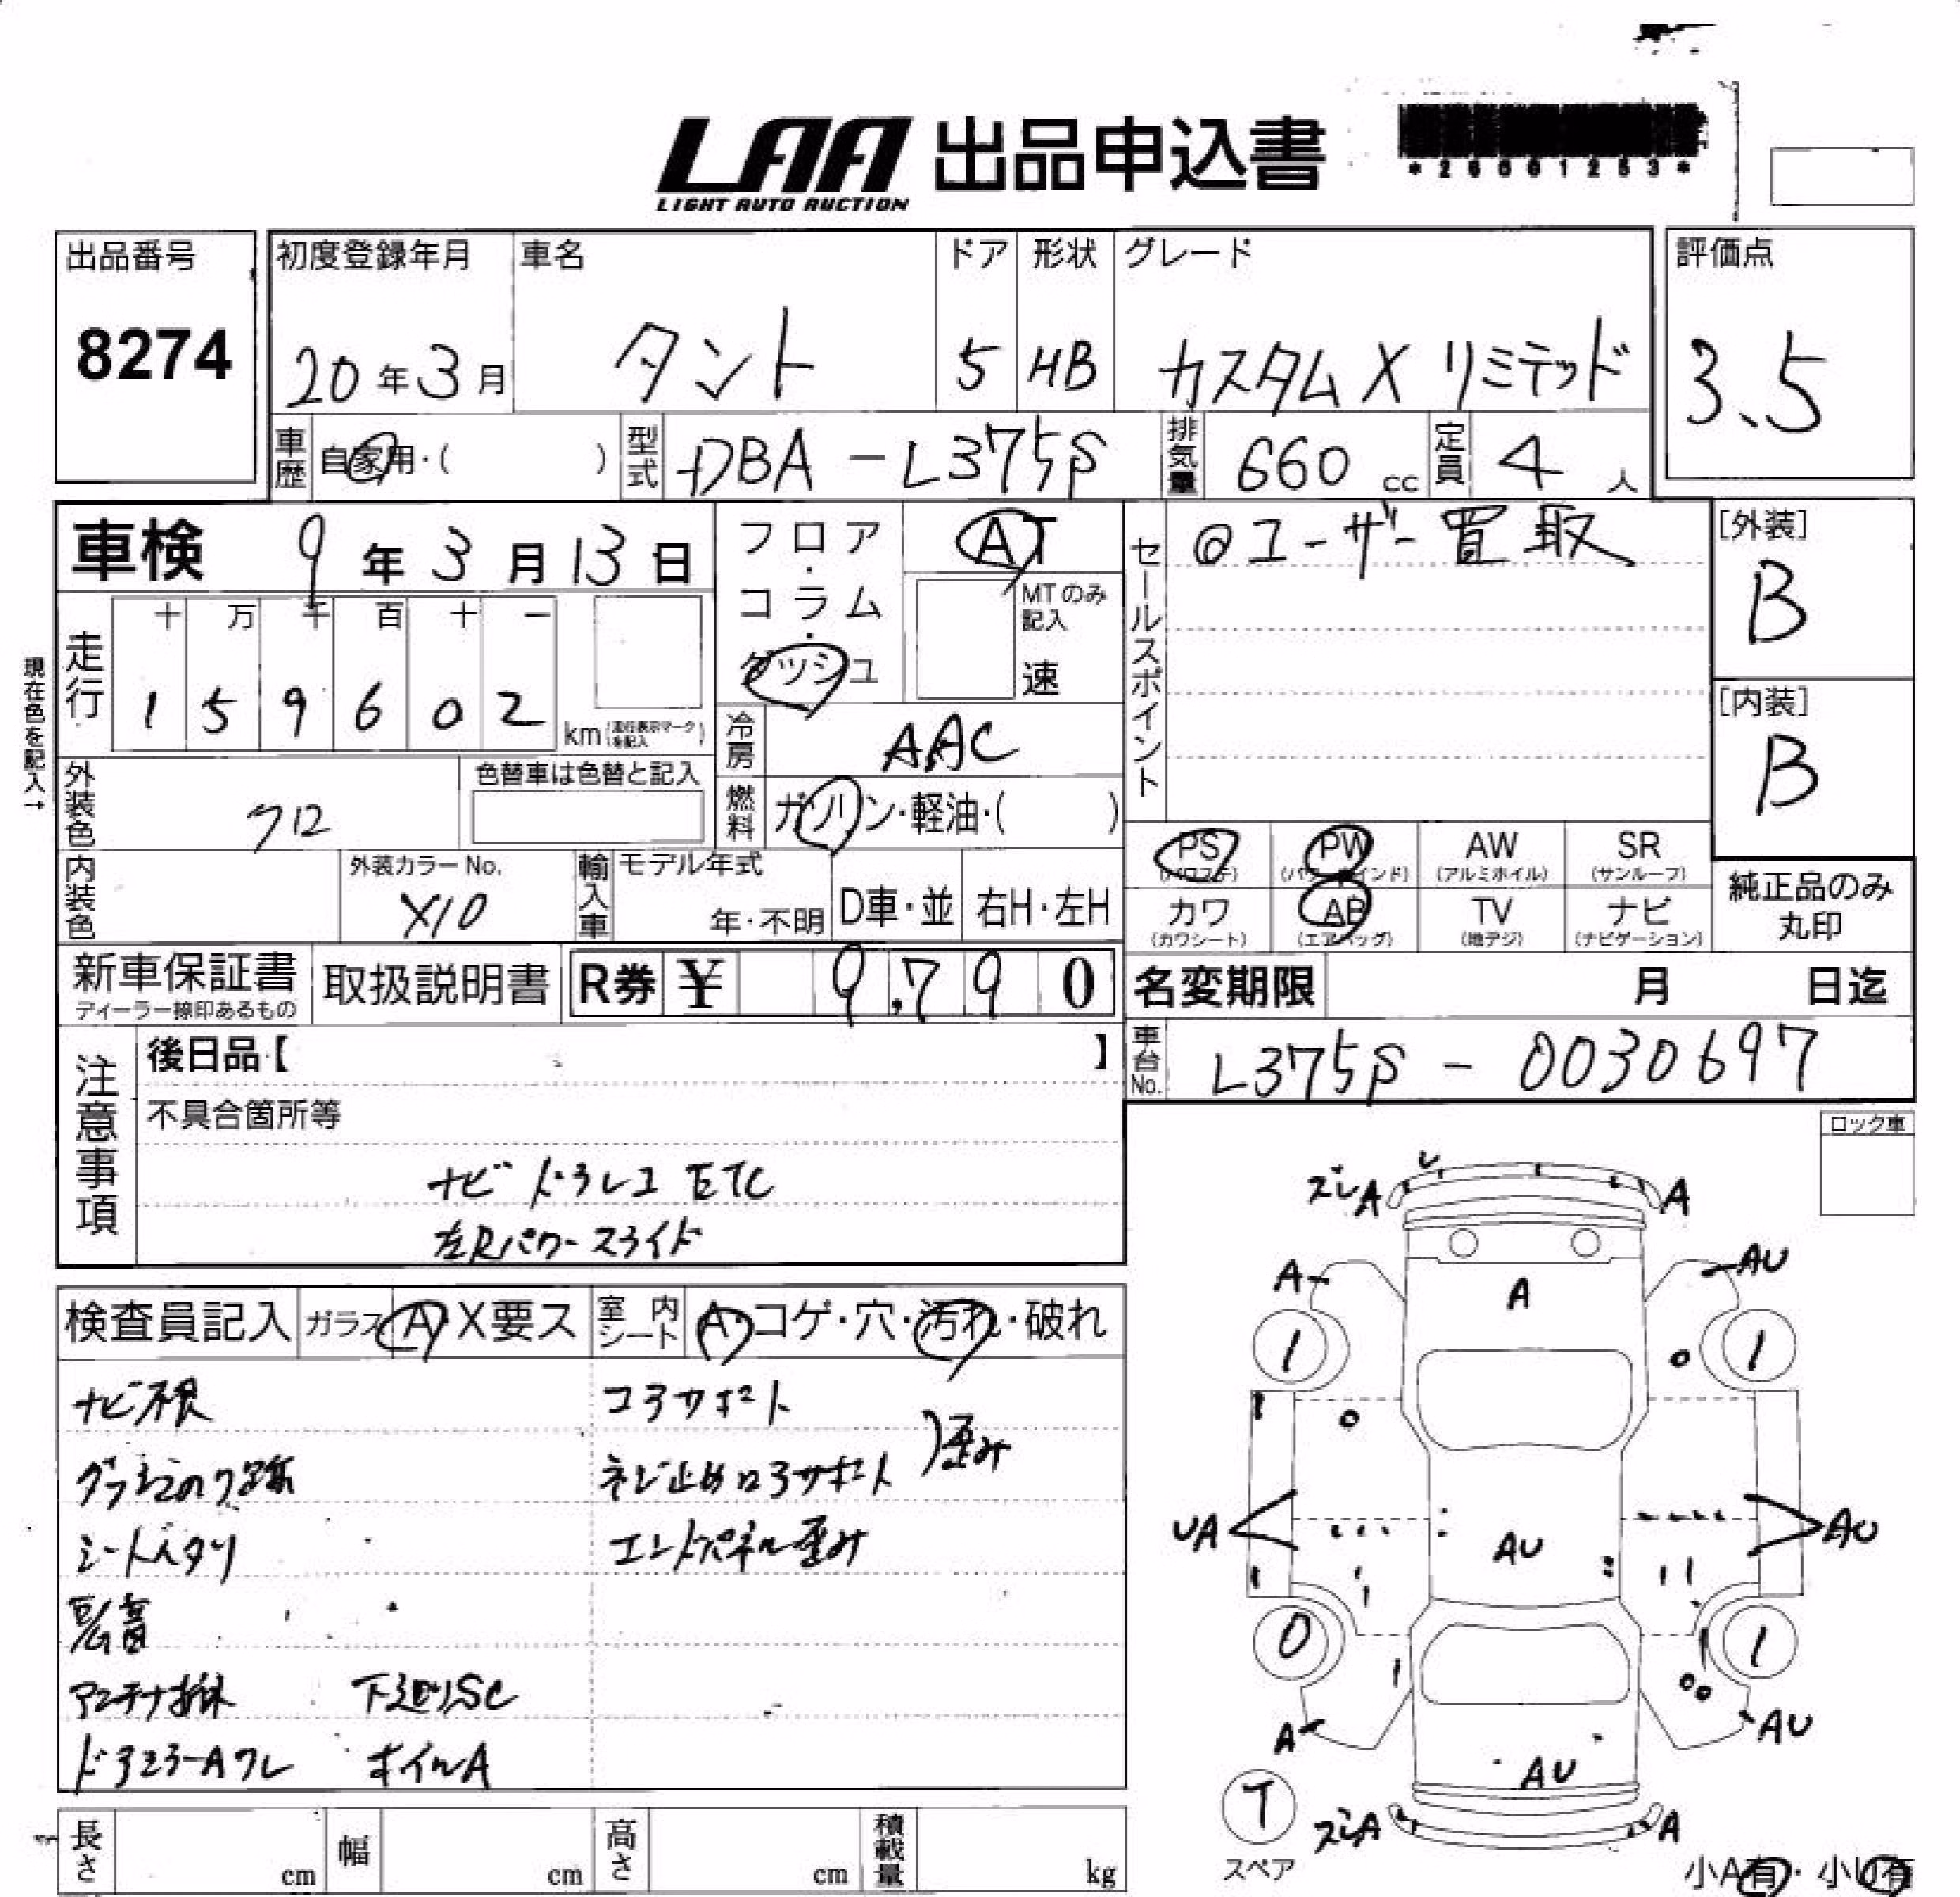 LAA 出品申込書
LIGHT AUTO AUCTION
*26001253*
出品番号
8274
初度登録年月
20年3月
車名
タント
ドア
5
形状
HB
グレード
カスタムX リミテッド
評価点
3.5
車歴 自家用・( )
型式 DBA-L375S
排気量 660 cc
定員 4 人
車検 9年3月13日
フロア・コラム・ダッシュ
AT
MTのみ記入
速
セールスポイント
◎ユーザー買取
[外装]
B
[内装]
B
現在色を記入→
走行
十 万 千 百 十 一
1 5 9 6 0 2 km (走行表示マークを記入)
冷房 AAC
外装色 クロ
色替車は色替と記入
燃料 ガソリン・軽油・( )
内装色
外装カラーNo.
X10
輸入車
モデル年式
年・不明
D車・並
右H・左H
PS (パワステ)
PW (パワーウインド)
AW (アルミホイル)
SR (サンルーフ)
カワ (カワシート)
AB (エアバッグ)
TV (地デジ)
ナビ (ナビゲーション)
純正品のみ丸印
新車保証書
ディーラー捺印あるもの
取扱説明書
R券 ¥ 9,790
名変期限 月 日迄
車台No. L375S-0030697
注意事項
後日品【 】
不具合箇所等
ナビ ドラレコ ETC
左Rパワースライド
ロック車
検査員記入
ガラス A X要ス
室内シート A・コゲ・穴・汚れ・破れ
ナビ不良
コアサポート
ネジ止めロアサポート
歪み
シートヘタリ
エンドパネル歪み
下廻りSC
ドアミラーAワレ
ホイルA
ズレA
A
A
AU
A
1
1
UA
AU
AU
0
1
A
AU
AU
T
スペア
ズレA
A
小A有・小U有
長さ cm
幅 cm
高さ cm
積載量 kg